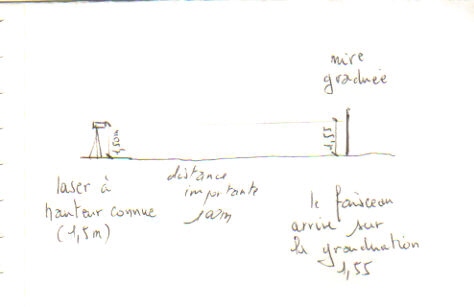 mire
graduée
1,50m
1,55
laser à
hauteur connue
(1,5m)
distance
importante
100m
le faisceau
arrive sur
la graduation
1,55